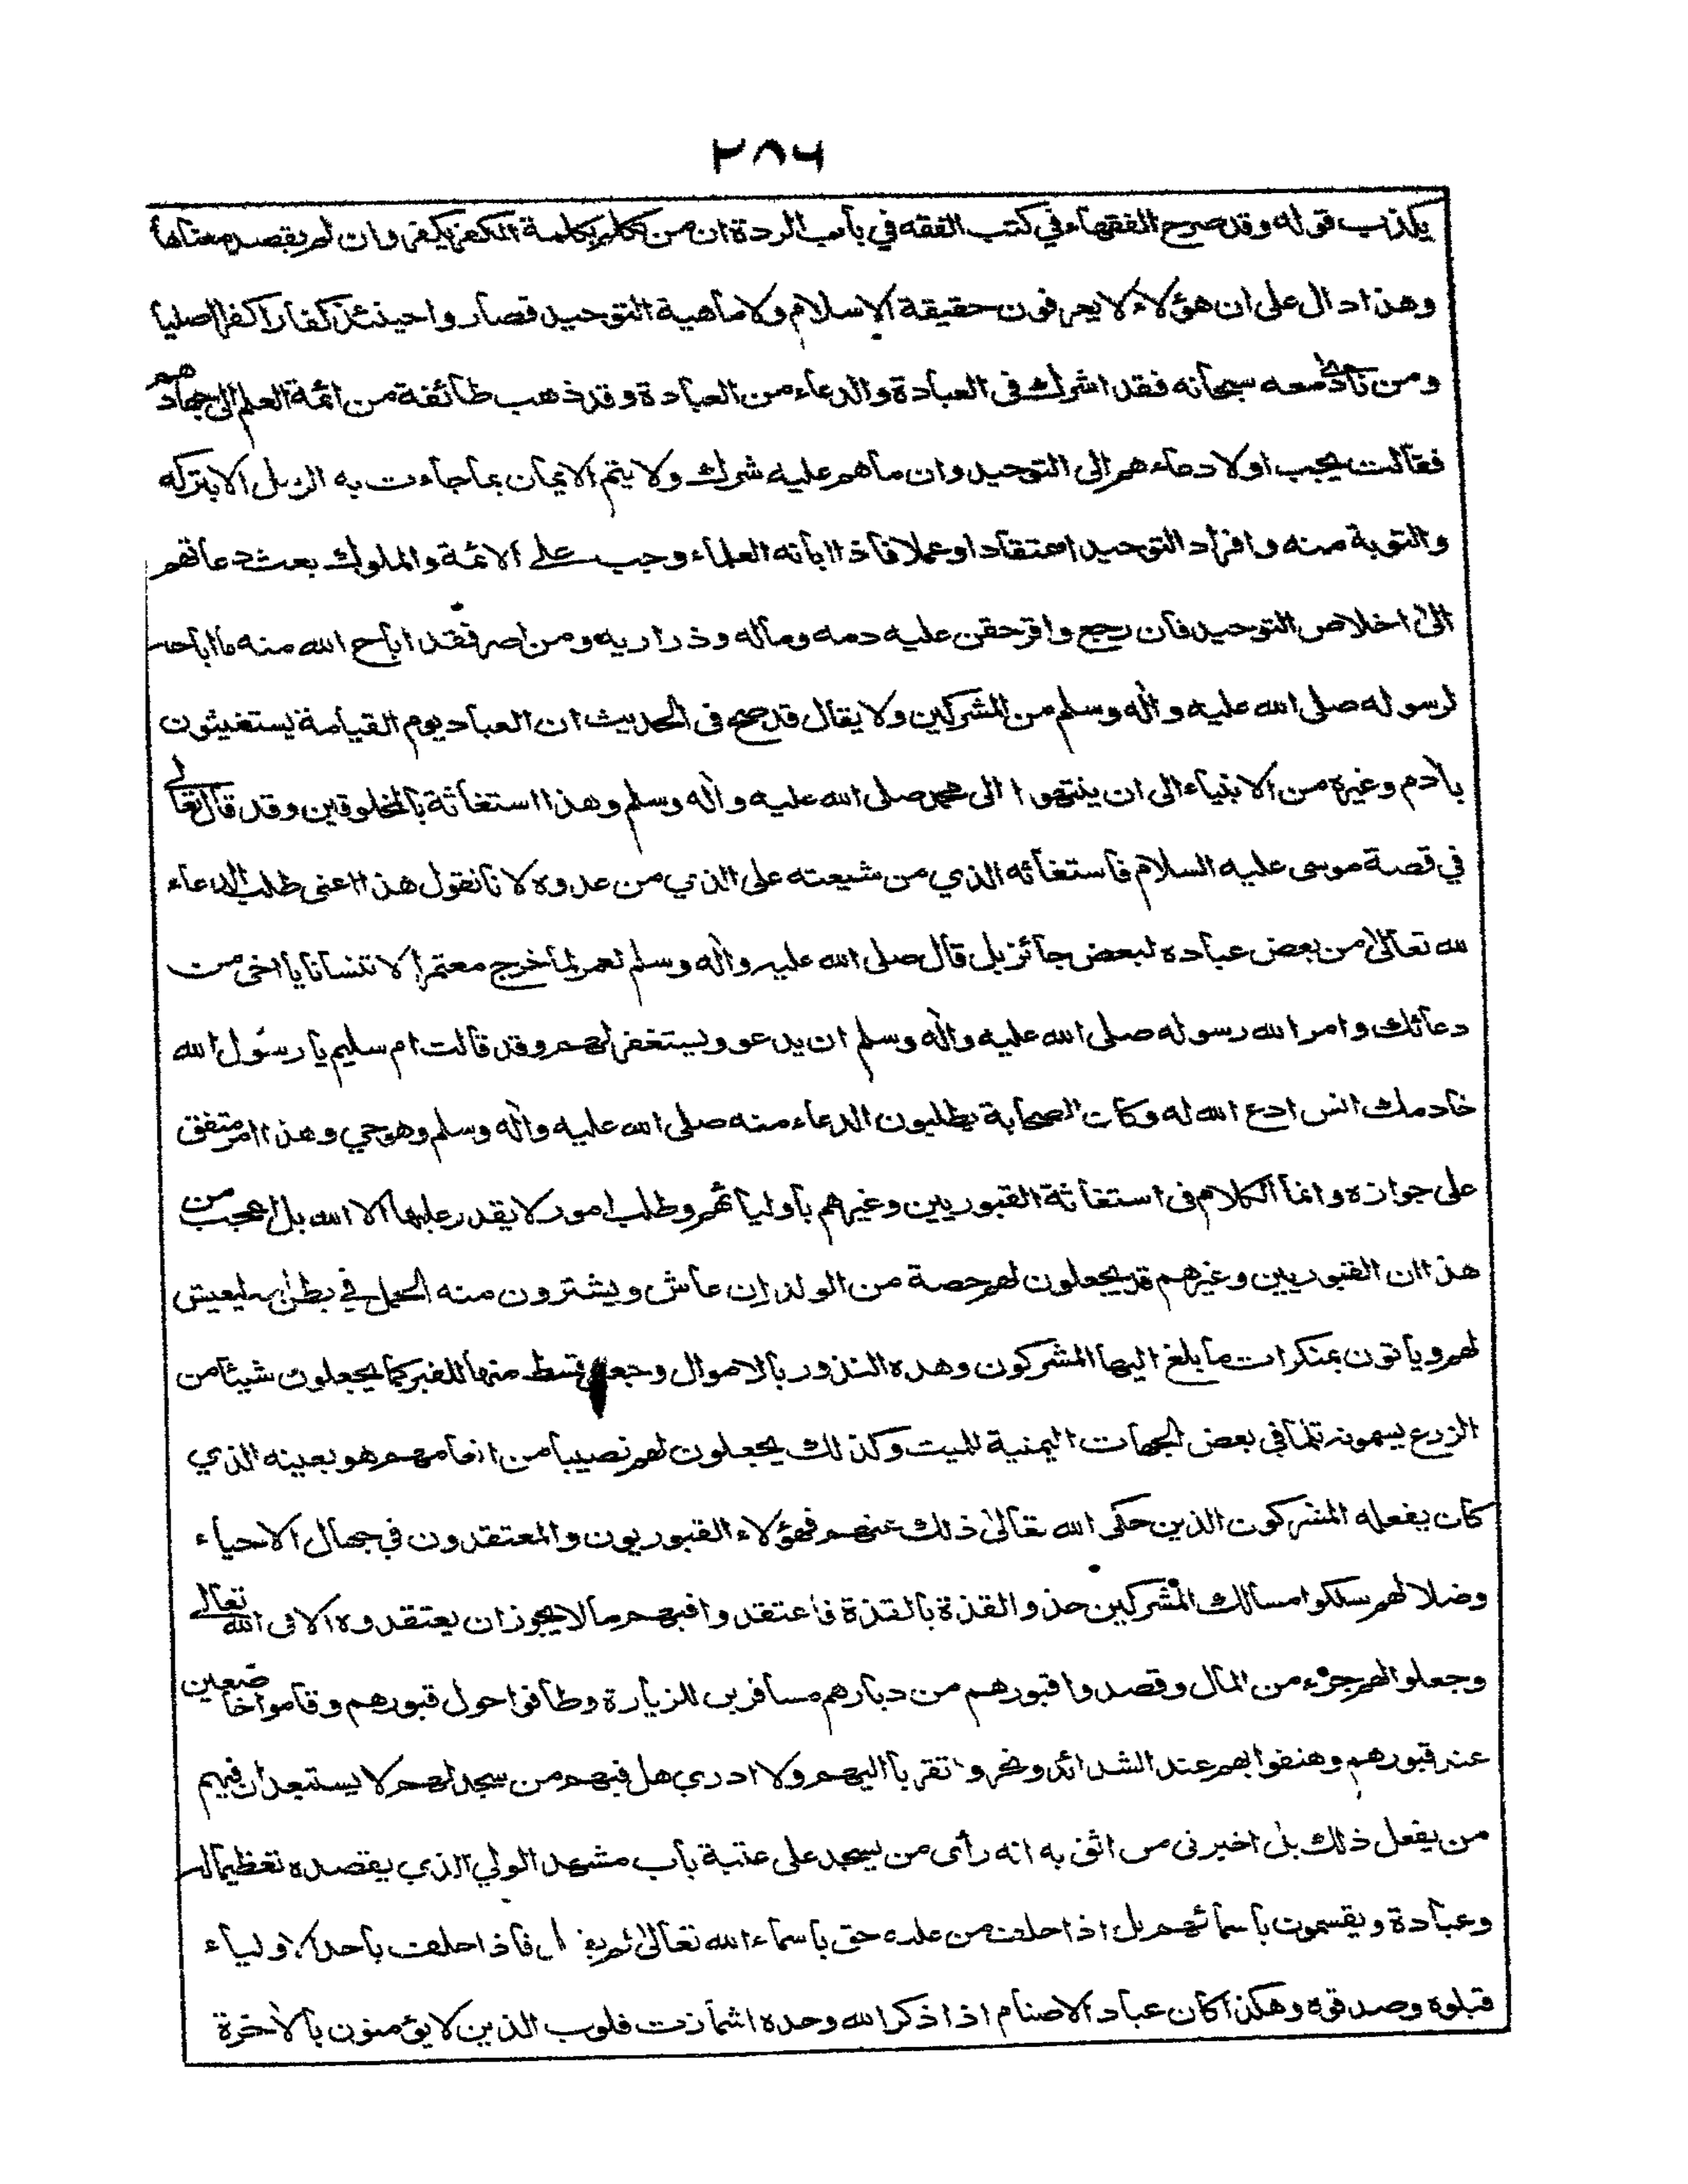 ٢٨٦
يكذب قوله وقد صرح الفقهاء في كتب الفقه في باب الردة ان من تكلم بكلمة الكفر يكفر وان لم يقصد معناها
وهذا دال على ان هؤلاء لا يعرفون حقيقة الاسلام ولا ماهية التوحيد فصاروا حينئذ كفارا كفرا اصليا
ومن نادى معه سبحانه فقد اشرك في العبادة والدعاء من العبادة وقد ذهب طائفة من ائمة العلم الى جهادهم
فقالت يجب اولا دعاءهم الى التوحيد وان ما هم عليه شرك ولا يتم الايمان بما جاءت به الرسل الا بتركه
والتوبة منه وافراد التوحيد اعتقادا وعملا فاذا ابانه العلماء وجب على الائمة والملوك بعث دعاتهم
الى اخلاص التوحيد فان رجع واقر حقن عليه دمه وماله وذراريه ومن اصر فقد اباح الله منه ما اباحه
لرسوله صلى الله عليه وآله وسلم من المشركين ولا يقال قد صح في الحديث ان العباد يوم القيامة يستغيثون
بآدم وغيره من الانبياء الى ان ينتهوا الى محمد صلى الله عليه وآله وسلم وهذا استغاثة بالمخلوقين وقد قال تعالى
في قصة موسى عليه السلام فاستغاثه الذي من شيعته على الذي من عدوه لانا نقول هذا اعنى طلب الدعاء
لله تعالى من بعض عباده لبعض جائز بل قال صلى الله عليه وآله وسلم لعمر لما خرج معتمرا لا تنسانا يا اخي من
دعائك وامر الله رسوله صلى الله عليه وآله وسلم ان يدعو ويستغفر لهم وقد قالت ام سليم يا رسول الله
خادمك انس ادع الله له وكان الصحابة يطلبون الدعاء منه صلى الله عليه وآله وسلم وهو حي وهذا امر متفق
على جوازه وانما الكلام في استغاثة القبوريين وغيرهم باوليائهم وطلب امور لا يقدر عليها الا الله بل اعجب من
هذا ان القبوريين وغيرهم قد يجعلون لهم حصة من الولد ان عاش ويشترون منه الحمل في بطن امه ليعيش
لهم وياتون بمنكرات ما بلغ اليها المشركون وهذه النذور بالاموال وجعل قسط منها للقبر كما يجعلون شيئا من
الزرع يسمونه تلما في بعض الجهات اليمنية للميت وكذلك يجعلون لهم نصيبا من انعامهم هو بعينه الذي
كان يفعله المشركون الذين حكى الله تعالى ذلك عنهم فهؤلاء القبوريون والمعتقدون في جهال الاحياء
وضلالهم سلكوا مسالك المشركين حذو القذة بالقذة فاعتقدوا فيهم ما لا يجوز ان يعتقدوه الا في الله تعالى
وجعلوا لهم جزء من المال وقصدوا قبورهم من ديارهم مسافرين للزيارة وطافوا حول قبورهم وقاموا خاضعين
عند قبورهم وهتفوا بهم عند الشدائد ونحروا تقربا اليهم ولا ادري هل فيهم من سجد لهم لا يستبعد ان فيهم
من يفعل ذلك بل اخبرني من اثق به انه رأى من يسجد على عتبة باب مشهد الولي الذي يقصده تعظيما له
وعبادة ويقسمون باسمائهم بل اذا حلف من عليه حق باسماء الله تعالى لم يقبل فاذا حلف باحد الاولياء
قبلوه وصدقوه وهكذا كان عباد الاصنام اذا ذكر الله وحده اشمأزت قلوب الذين لا يؤمنون بالآخرة